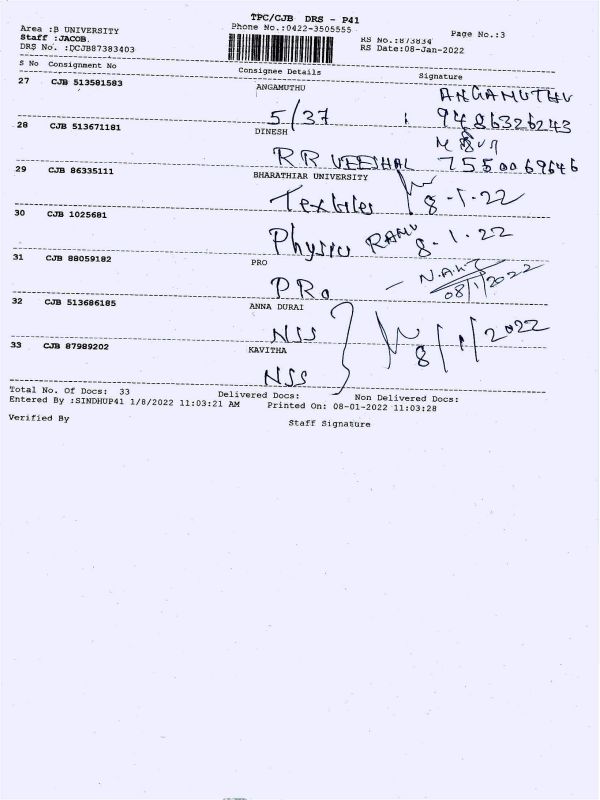 TPC/CJB DRS - P41
Area :B UNIVERSITY Phone No.:0422-3505555 Page No.:3
Staff :JACOB. RS No.:873834
DRS No. :DCJB87383403 RS Date:08-Jan-2022
S No Consignment No Consignee Details Signature
27 CJB 513581583 ANGAMUTHU ANGAMUTHU
5/37 9486326243
28 CJB 513671181 DINESH
RR VEESHAL 7550069646
29 CJB 86335111 BHARATHIAR UNIVERSITY
Textiles 8-1-22
30 CJB 1025681
Physics RAMU 8-1-22
31 CJB 88059182 PRO
PRO 08/1/2022
32 CJB 513686185 ANNA DURAI
NSS 8/1/2022
33 CJB 87989202 KAVITHA
NSS
Total No. Of Docs: 33 Delivered Docs: Non Delivered Docs:
Entered By :SINDHUP41 1/8/2022 11:03:21 AM Printed On: 08-01-2022 11:03:28
Verified By Staff Signature